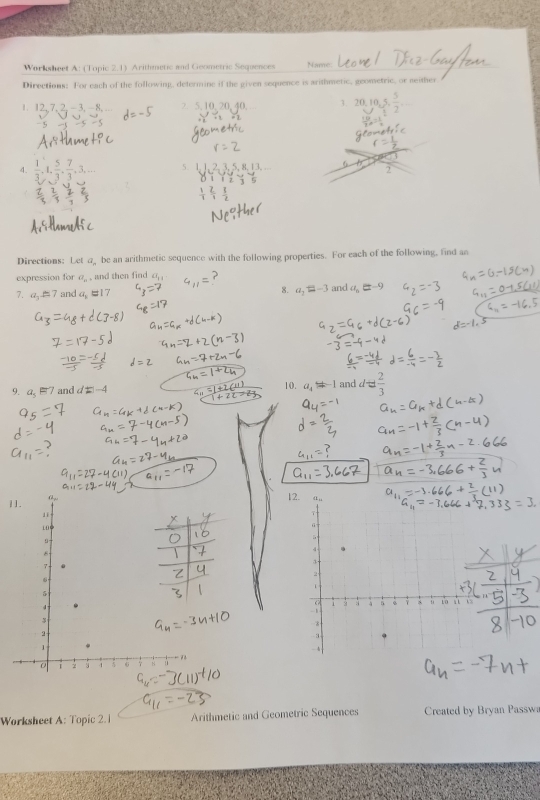 Worksheet A: (Topic 2.1) Arithmetic and Geometric Sequences Name:
Directions: For each of the following, determine if the given sequence is arithmetic, geometric, or neither.
1. 12, 7, 2, −3, −8, ... d=-5
-5 -5 -5 -5
Arithmetic
2. 5, 10, 20, 40, ...
·2 ·2 ·2
geometric
r=2
3. 20, 10, 5, 5/2, ...
geometric
r=1/2
4. 1/3, 1, 5/3, 7/3, 3, ...
Arithmetic
5. 1, 1, 2, 3, 5, 8, 13, ...
0 1 1 2 3 5
Neither
Directions: Let aₙ be an arithmetic sequence with the following properties. For each of the following, find an
expression for aₙ, and then find a₁₁.
7. a₃ = 7 and a₈ = 17
a₃=7 a₁₁=?
a₈=17
a₃=a₈+d(3-8)
7=17-5d
-10/-5=-5d/-5
d=2
aₙ=aₖ+d(n-k)
aₙ=7+2(n-3)
aₙ=7+2n-6
aₙ=1+2n
a₁₁=1+2(11)
1+22=23
8. a₂ = −3 and a₆ = −9
a₂=-3
a₆=-9
a₂=a₆+d(2-6)
-3=-9-4d
6/-4=-4d/-4 d=6/-4=-3/2
aₙ=0-1.5(n)
a₁₁=0-1.5(11)
a₁₁=-16.5
d=-1.5
9. a₅ = 7 and d = −4
a₅=7
d=-4
a₁₁=?
aₙ=aₖ+d(n-k)
aₙ=7-4(n-5)
aₙ=7-4n+20
aₙ=27-4n
a₁₁=27-4(11)
a₁₁=27-44
a₁₁=-17
10. a₄ = −1 and d = 2/3
a₄=-1
d=2/3
a₁₁=?
a₁₁=3.667
aₙ=aₖ+d(n-k)
aₙ=-1+2/3(n-4)
aₙ=-1+2/3n-2.666
aₙ=-3.666+2/3n
a₁₁=-3.666+2/3(11)
a₁₁=-3.666+7.333=3.
11.
aₙ
x y
0 10
1 7
2 4
3 1
aₙ=-3n+10
a₁₁=-3(11)+10
a₁₁=-23
12.
aₙ
x y
2 4
5 -3
8 -10
aₙ=-7n+
Worksheet A: Topic 2.1 Arithmetic and Geometric Sequences Created by Bryan Passwa